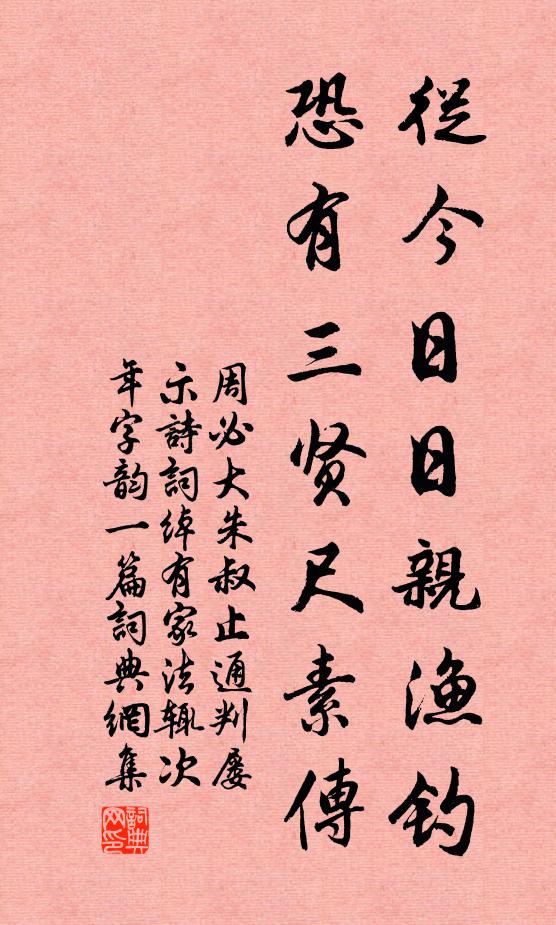 從今日日親漁釣
恐有三贤尺素傳
周必大朱叔止通判屡
示詩詞綽有家法輒次
年字韵一篇詞典網集
詞典网印